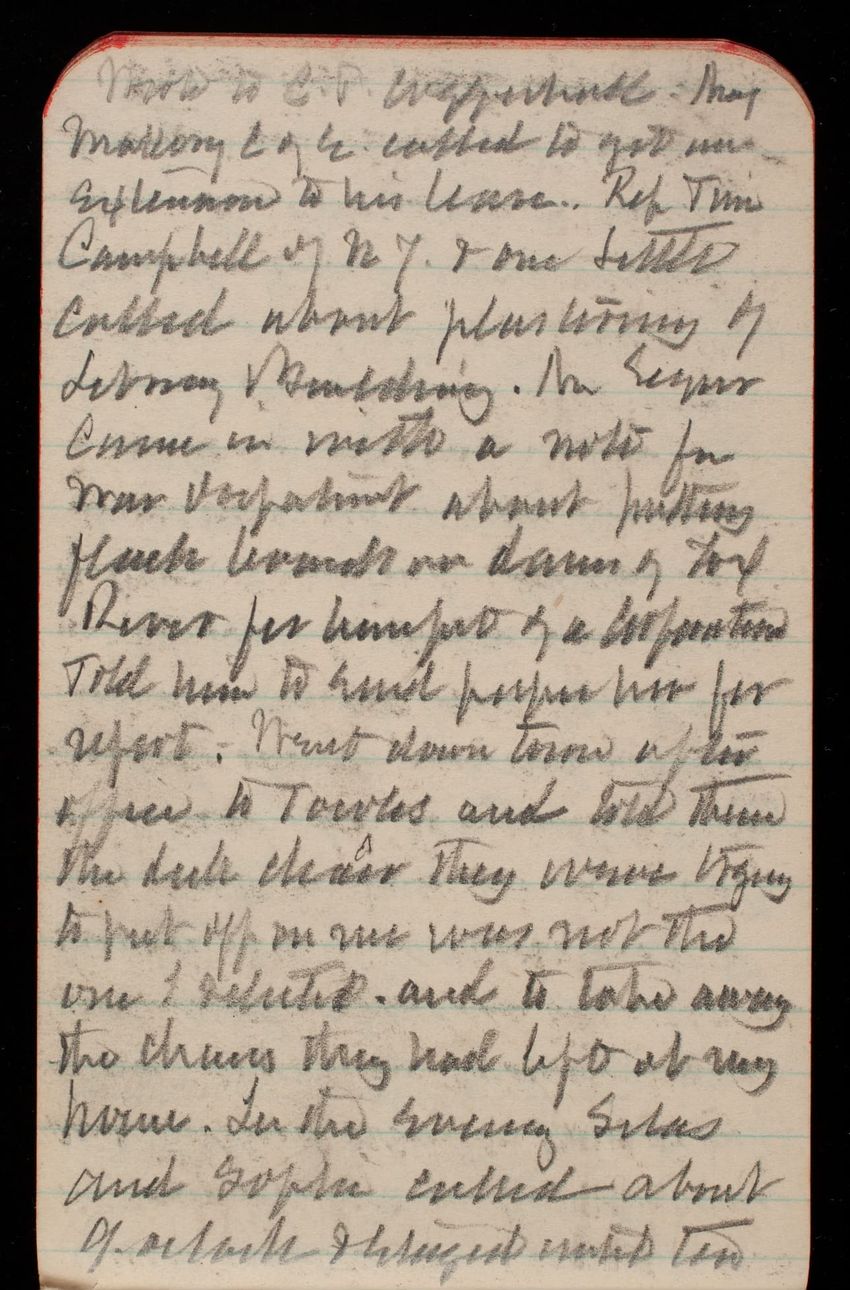 Wrote to C.P. . Maj
Mallory C of E. called to get an
Extension to his leave.. Rep Tim
Campbell of N Y. & one
called about plastering of
Library Building. Mr
Came in with a note fm
War Department about putting
flash boards on dams of Fox
River for benefit of a Corporation
Told him to send paper here for
report. Went down town after
office to Towles and told them
the desk chair they were trying
to put off on me was not the
one I selected. and to take away
the chairs they had left at my
house. In the Evening Silas
and Sophie called about
9. oclock & stayed until ten